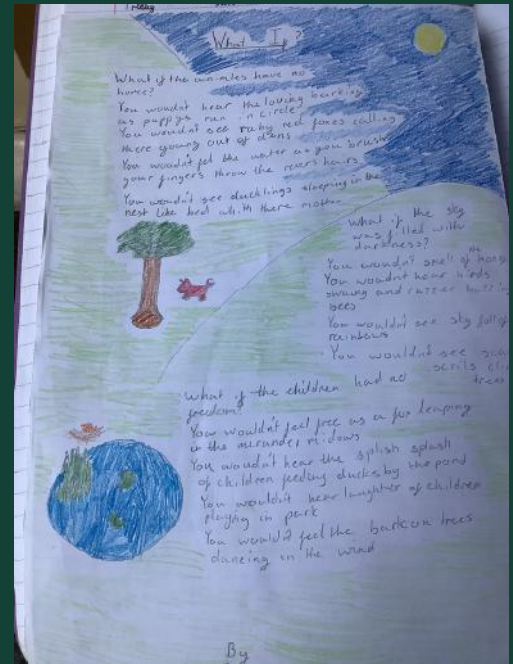 Friday
What If?
What if the animles have no
homes?
You woudn't hear the loving barking
as puppys run in circle
You woudn't see ruby red foxes calling
there young out of dens
You woudn't fell the water as you brush
your fingers throw the rivers hours
You woudn't see ducklings sleeping in the
nest like bed whith there mother
What if the sky
was filled with
darkness?
You woudn't smell of the
You woudn't hear birds
swiing and buzzing
bees
You wouldn't see sky full of
rainbows
You wouldn't see
trees
What if the children had no
freedom?
You wouldn't feel free as a fox leaping
in the midows
You woudn't hear the splish splash
of children feeding ducks by the pond
You wouldn't hear laughter of children
playing in park
You would'd feel the bark on trees
dancing in the wind
By